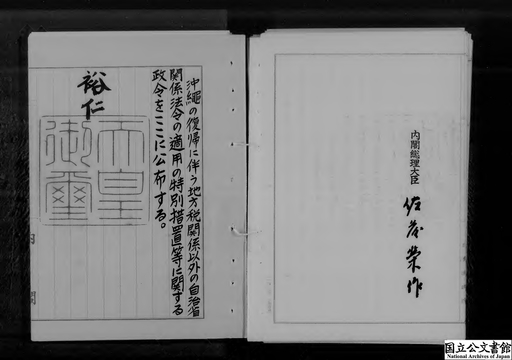 沖縄の復帰に伴う地方税関係以外の自治省
関係法令の適用の特別措置等に関する
政令をここに公布する。
裕仁
天皇
御璽
内閣総理大臣
佐藤榮作
国立公文書館
National Archives of Japan